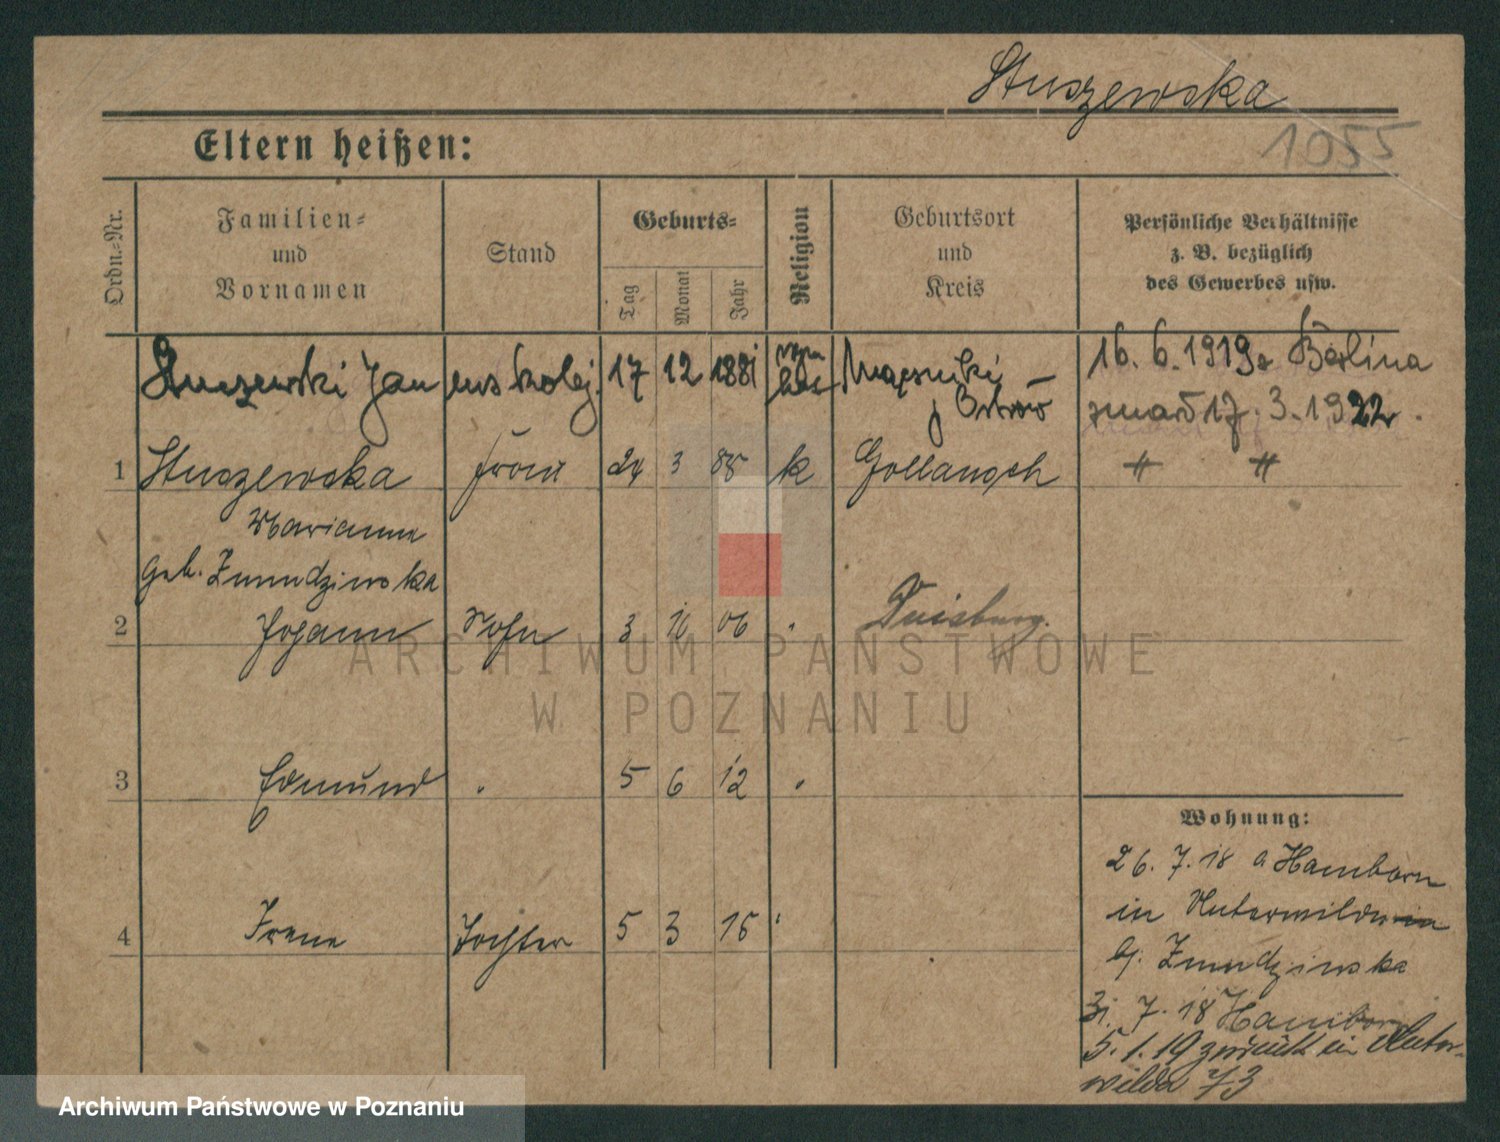 Stuszewska
1055
Eltern heißen:
Ordn.-Nr.
Familien-
und
Vornamen
Stand
Geburts-
Tag
Monat
Jahr
Religion
Geburtsort
und
Kreis
Persönliche Verhältnisse
z. B. bezüglich
des Gewerbes usw.
Stuszewski Jan 17 12 1881
16. 6. 1919 z Berlina
zmarł 17. 3. 1922.
1 Stuszewska Frau 24 3 88 k Gollantsch
Marianna
geb. Zmudzinska
2 Johann Sohn 3 10 06 Duisburg.
3 Edmund 5 6 12
4 Irene Tochter 5 3 15
Wohnung:
26. 7. 18 a Hamborn
in Unterwilda
bj. Zmudzinska
31. 7. 18 Hamborn
5. 1. 19 zurück in Unter-
wilda 73
ARCHIWUM PAŃSTWOWE
W POZNANIU
Archiwum Państwowe w Poznaniu